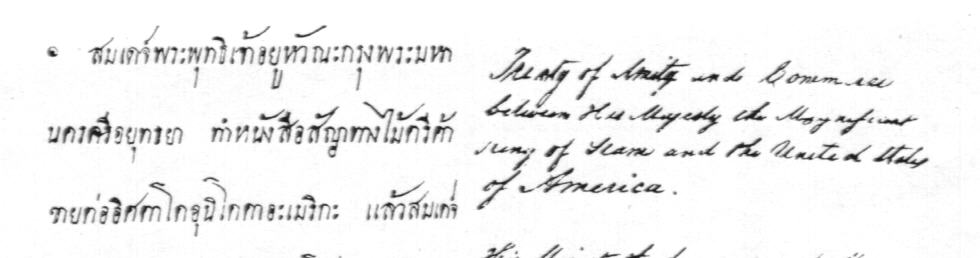 ๏ สมเดจ์พระพุทธิเจ้าอยู่หัวณะกรุงพระมหา
นครศรีอยุทธยา ทำหนังสือสัญาทางไม้ตรีค้า
ขายต่ออิศตาโดอุนิโดดาอะเมริกะ แล้วสมเดจ์
Treaty of Amity and Commerce
between His Majesty the Magnificent
King of Siam and the United States
of America.